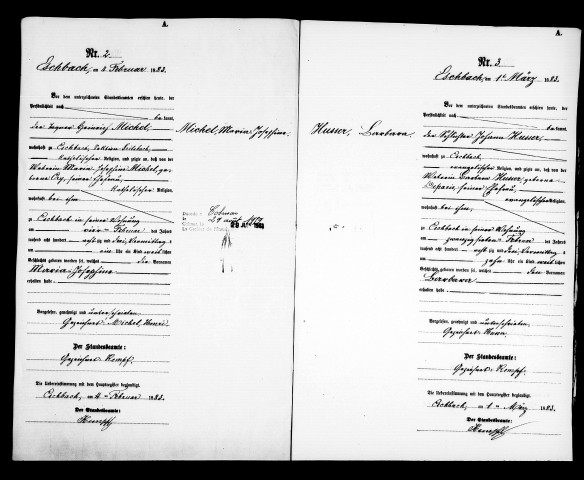 A.
Nr. 2
Eschbach, am 4 Februar 1883.
Vor dem unterzeichneten Standesbeamten erschien heute, der
Persönlichkeit nach
kannt,
der Tagner Heinrich Michel,
wohnhaft zu Eschbach,
katholischer Religion, und zeigte an, daß von der
Maria Josephine Michel, ge-
seiner Ehefrau
katholischer Religion,
wohnhaft bei ihm,
zu Eschbach in seiner Wohnung
am Februar des Jahres
tausend acht hundert achtzig und drei, Vormittag
um Uhr ein Kind weib-
lichen
Geschlechts geboren worden sei, welches die Vornamen
Maria Josephina
erhalten habe.
Vorgelesen, genehmigt und unterschrieben
Gezeichnet: Michel Henri
Der Standesbeamte:
Gezeichnet: Kempf.
Die Uebereinstimmung mit dem Hauptregister beglaubigt.
Eschbach, am 4 ten Februar 1883.
Der Standesbeamte:
Kempf
Michel, Maria Josephina.
Colmar
29 août
A.
Nr. 3
Eschbach, am 1 ten März 1883.
Vor dem unterzeichneten Standesbeamten erschien heute, der
Persönlichkeit nach
kannt,
der Johann Husser,
wohnhaft zu Eschbach,
evangelischer Religion, und zeigte an, daß von der
Barbara Husser, geborene
seiner Ehefrau,
evangelischer Religion,
wohnhaft bei ihm,
zu Eschbach in seiner Wohnung
am zwanzig sieben ten Februar des Jahres
tausend acht hundert achtzig und drei, Vormittag
um zehn Uhr ein Kind weib-
lichen
Geschlechts geboren worden sei, welches den Vornamen
Barbara
erhalten habe.
Vorgelesen, genehmigt und unterschrieben
Gezeichnet:
Der Standesbeamte:
Gezeichnet: Kempf.
Die Uebereinstimmung mit dem Hauptregister beglaubigt.
Eschbach, am 1 ten März 1883.
Der Standesbeamte:
Kempf
Husser, Barbara.